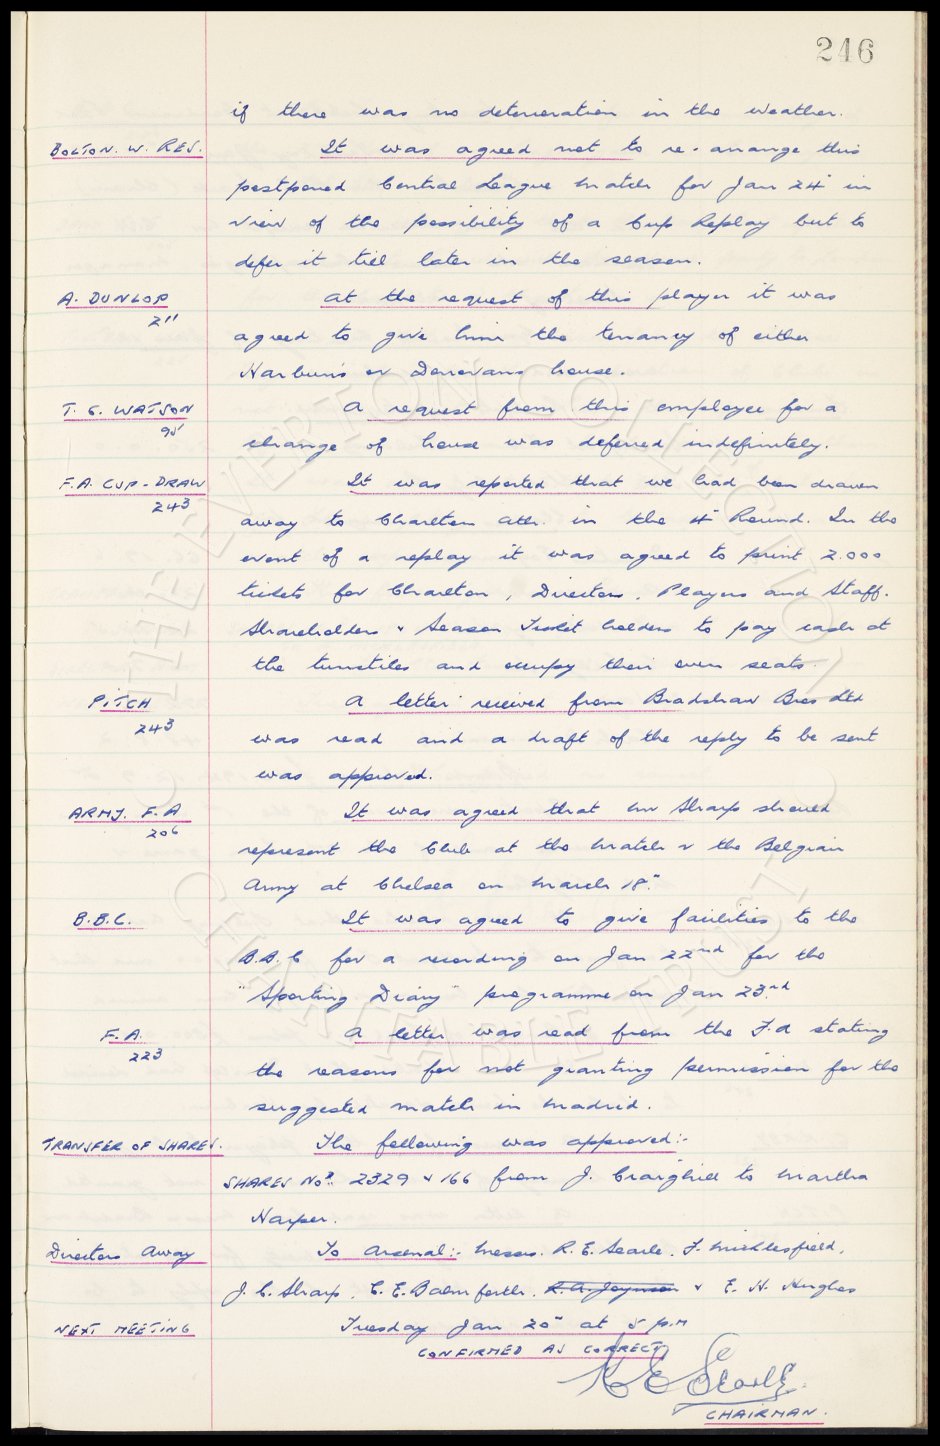 246
if there was no deterioration in the weather.
BOLTON. W. RES. It was agreed not to re-arrange this
postponed Central League match for Jan 24" in
view of the possibility of a Cup Replay but to
defer it till later in the season.
A. DUNLOP At the request of this player it was
211
agreed to give him the tenancy of either
Harburn's or Donovans house.
T. G. WATSON A request from this employee for a
95
change of house was deferred indefinitely.
F.A. CUP-DRAW It was reported that we had been drawn
243
away to Charlton Ath. in the 4" Round. In the
event of a replay it was agreed to print 2.000
tickets for Charlton, Directors, Players and Staff.
Shareholders & Season Ticket holders to pay cash at
the turnstiles and occupy their own seats.
PITCH A letter received from Bradshaw Bros Ltd
243
was read and a draft of the reply to be sent
was approved.
ARMY. F.A It was agreed that Mr Sharp should
206
represent the Club at the match v the Belgian
Army at Chelsea on March 18."
B.B.C. It was agreed to give facilities to the
B.B.C for a recording on Jan 22nd for the
"Sporting Diary" programme on Jan 23.rd
F.A. A letter was read from the F.A stating
223
the reasons for not granting permission for the
suggested match in Madrid.
TRANSFER OF SHARES. The following was approved:-
SHARES Nos. 2329 & 166 from J. Craighill to Martha
Harper.
Directors Away To Arsenal:- Messrs. R. E. Searle. F. Micklesfield,
J. C. Sharp. C. E. Balmforth. R. A. Joynson & E. H. Hughes
NEXT MEETING Tuesday Jan 20" at 5 p.m
CONFIRMED AS CORRECT
R E Searle
CHAIRMAN.
THE EVERTON COLLECTION
CHARITABLE TRUST